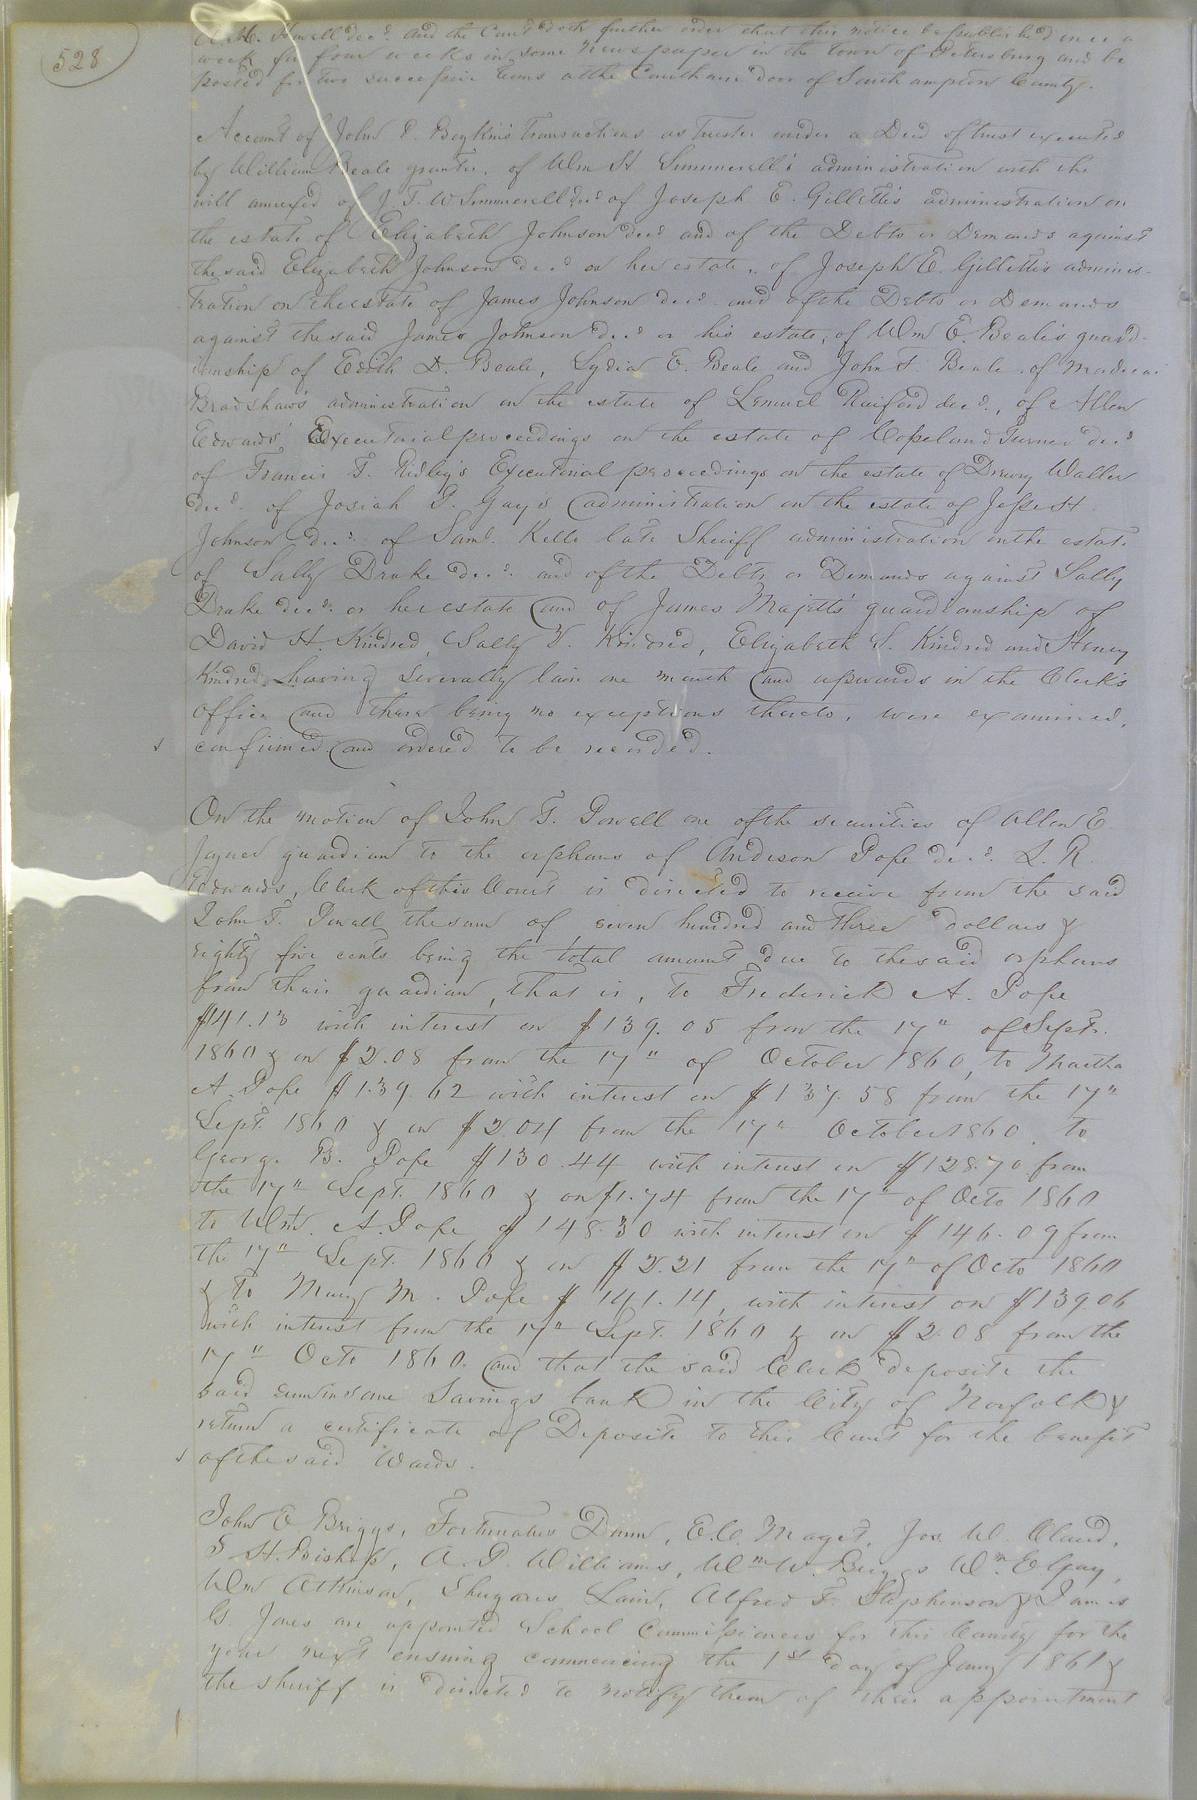 528
A. H. Howell decd. And the Court doth further order that this notice be published once a
week for four weeks in some Newspaper in the town of Petersburg and be
posted for two successive terms at the Courthouse door of Southampton County.
Account of John D. Boykin's transactions as Trustee under a Deed of trust executed
by William Beale grantor, of Wm H Summerell's administration with the
will annexed of J. T. W Summerell decd of Joseph E. Gillette's administration on
the estate of Elizabeth Johnson decd and of the Debts or Demands against
the said Elizabeth Johnson decd or her estate, of Joseph E. Gillette's adminis-
tration on the estate of James Johnson decd. and of the Debts or Demands
against the said James Johnson decd or his estate, of Wm E. Beale's guard-
ianship of Edith D. Beale, Lydia E. Beale and John F. Beale, of
Bradshaw's administration on the estate of Lemuel Raiford decd., of Allen
Edwards' Executorial proceedings on the estate of Copeland Turner decd
of Francis T. Ridley's Executorial proceedings on the estate of Drewry Waller
decd. of Josiah P. Gay's administration on the estate of Jesse H
Johnson decd. of Saml. Kello late Sheriff administration on the estate
of Sally Drake decd. and of the Debts or Demands against Sally
Drake decd. or her estate and of James Majett's guardianship of
David H. Kindred, Sally T. Kindred, Elizabeth S. Kindred and Henry
Kindred having severally lain one month and upwards in the Clerk's
office and there being no exceptions thereto, were examined,
confirmed and ordered to be recorded.
On the motion of John T. Powell one of the securities of Allen E
Joyner guardian to the orphans of Anderson Pope decd. L. R.
Edwards, Clerk of this Court is directed to receive from the said
John T. Powell the sum of seven hundred and three dollars &
eighty five cents being the total amount due to the said orphans
from their guardian, that is, to Frederick A. Pope
$141.13 with interest on $139.05 from the 17" of Sept.
1860 & on $2.08 from the 17" of October 1860, to Martha
A. Pope $139.62 with interest on $137.58 from the 17"
Sept. 1860 & on $2.04 from the 17" October 1860. to
George B. Pope $130.44 with interest on $128.70 from
the 17" Sept. 1860 & on $1.74 from the 17" of Octo 1860
to Wm. A. Pope $148.30 with interest on $146.09 from
the 17" Sept. 1860 & on $2.21 from the 17" of Octo 1860
& to Mary M. Pope $141.14, with interest on $139.06
with interest from the 17" Sept. 1860 & on $2.08 from the
17" Octo 1860. and that the said Clerk deposite the
said sum in some Savings bank in the City of Norfolk &
return a certificate of Deposite to this Court for the benefit
of the said Wards.
John E Briggs, Fortunatus Dunn, E. C. Maget, Jos. W. Claud,
S. H. Bishop, A. P. Williams, Wm W. Briggs Wm. E Gay,
Wm Atkinson, Shugars Lain, Alfred F. Stephenson & James
G. Jones are appointed School Commissioners for this County for the
year next ensuing commencing the 1st day of Jany 1861 &
the sheriff is directed to notify them of their appointment